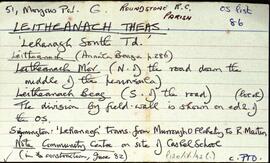 51, Murgros Pen. G. ROUNDSTONE R.C. PARISH
OS list 86
LEITHEANACH THEAS
Lehanagh South Td.
Leitheanach (Annita Banga p.286)
Leitheanach Mór (N. of the road down the
middle of the peninsula)
Leitheanach Beag (S. of the road)
The division by field-wall is shown on ed. 2 of
the OS.
Simington: Lehanagh trans. from Murrough O Flaherty to R. Martin
Note Community Centre on site of Cashel School
(in the construction, June 82)
PTO.